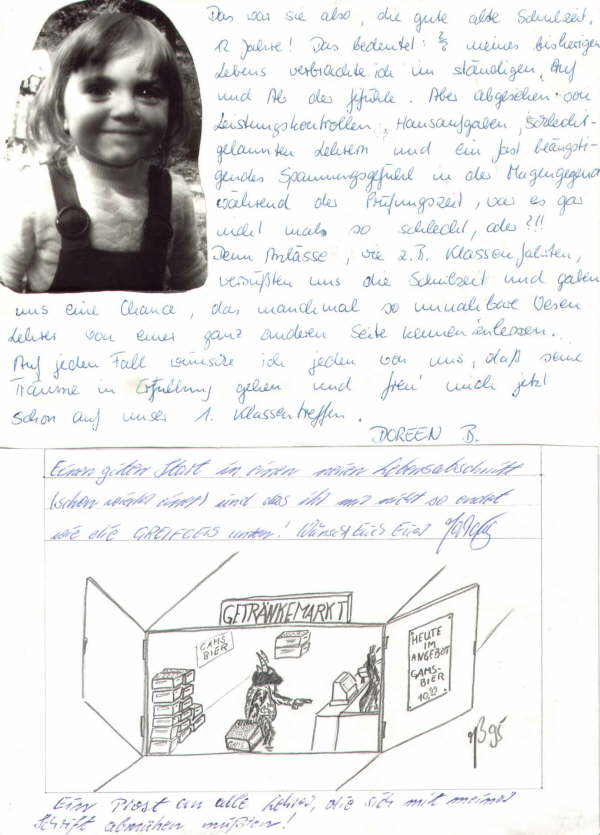 Das war sie also, die gute alte Schulzeit.
12 Jahre! Das bedeutet: 2/3 meines bisherigen
Lebens verbrachte ich im ständigen Auf
und Ab der Gefühle. Aber abgesehen von
Leistungskontrollen, Hausaufgaben, schlecht-
gelaunten Lehrern und ein fast beängsti-
gendes Spannungsgefühl in der Magengegend
während der Prüfungszeit, war es gar
nicht mal so schlecht, oder?!!
Denn Anlässe, wie z.B. Klassenfahrten,
versüßten uns die Schulzeit und gaben
uns eine Chance, das manchmal so unnahbare Wesen
Lehrer von einer ganz anderen Seite kennenzulernen.
Auf jeden Fall wünsche ich jeden von uns, daß seine
Träume in Erfüllung gehen und freu' mich jetzt
schon auf unser 1. Klassentreffen.
DOREEN B.
Einen guten Start in einen neuen Lebensabschnitt
(schon wieder einer) und das ihr mir nicht so endet
wie die unten! Wünscht Euch Euer
GETRÄNKEMARKT
GAMS-
BIER
HEUTE
IM
ANGEBOT
GAMS-
BIER
95
Ein Prost an alle Lehrer, die sich mit meiner
Schrift abmühen mußten!